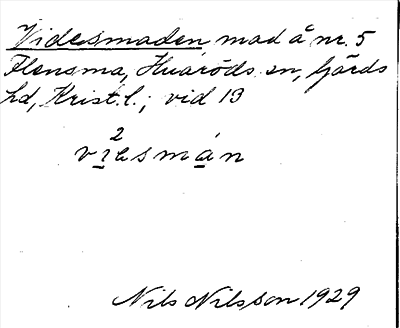 Videsmaden, mad å nr. 5
Flensma, Huaröds sn, Gärds
hd, Krist. l.; vid 13
2
vìɛsmán
Nils Nilsson 1929